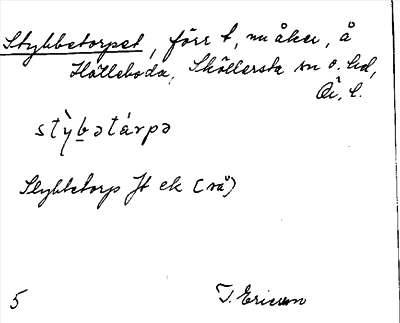 Stybbetorpet, förr t, nu åker, å
Hålleboda, Sköllersta sn o. hd,
Ör. l.
stỳbətárpə
Stybbetorp Jt ek (rå)
T. Ericsson
5